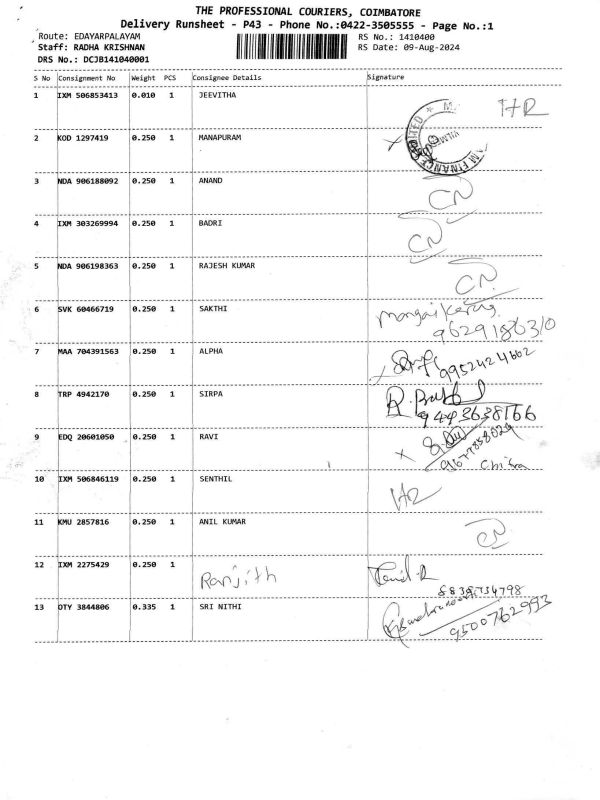 THE PROFESSIONAL COURIERS, COIMBATORE
Delivery Runsheet - P43 - Phone No.:0422-3505555 - Page No.:1
Route: EDAYARPALAYAM RS No.: 1410400
Staff: RADHA KRISHNAN RS Date: 09-Aug-2024
DRS No.: DCJB141040001
S No Consignment No Weight PCS Consignee Details Signature
1 IXM 506853413 0.010 1 JEEVITHA HR
2 KOD 1297419 0.250 1 MANAPURAM
3 NDA 906188092 0.250 1 ANAND CN
4 IXM 303269994 0.250 1 BADRI CN
5 NDA 906198363 0.250 1 RAJESH KUMAR CN
6 SVK 60466719 0.250 1 SAKTHI
9629186310
7 MAA 704391563 0.250 1 ALPHA 9952424602
8 TRP 4942170 0.250 1 SIRPA
9443638166
9 EDQ 20601050 0.250 1 RAVI
10 IXM 506846119 0.250 1 SENTHIL HR
11 KMU 2857816 0.250 1 ANIL KUMAR
12 IXM 2275429 0.250 1 Ranjith
13 OTY 3844806 0.335 1 SRI NITHI 9500762993